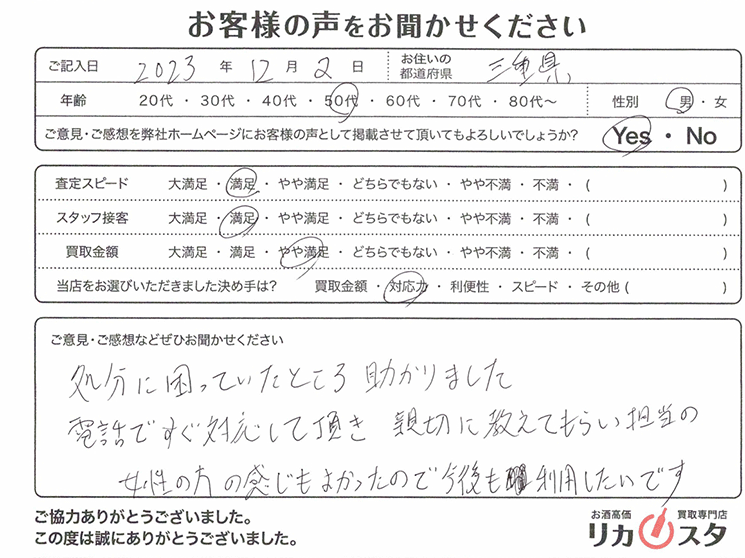 お客様の声をお聞かせください
ご記入日 2023 年 12 月 2 日 お住いの都道府県 三重県
年齢 20代・30代・40代・50代・60代・70代・80代〜 性別 男・女
ご意見・ご感想を弊社ホームページにお客様の声として掲載させて頂いてもよろしいでしょうか? Yes・No
査定スピード 大満足・満足・やや満足・どちらでもない・やや不満・不満・( )
スタッフ接客 大満足・満足・やや満足・どちらでもない・やや不満・不満・( )
買取金額 大満足・満足・やや満足・どちらでもない・やや不満・不満・( )
当店をお選びいただきました決め手は? 買取金額・対応力・利便性・スピード・その他( )
ご意見・ご感想などぜひお聞かせください
処分に困っていたところ 助かりました
電話ですぐ対応して頂き 親切に教えてもらい担当の
女性の方の感じもよかったので今後も利用したいです
ご協力ありがとうございました。
この度は誠にありがとうございました。
お酒高価 買取専門店
リカスタ